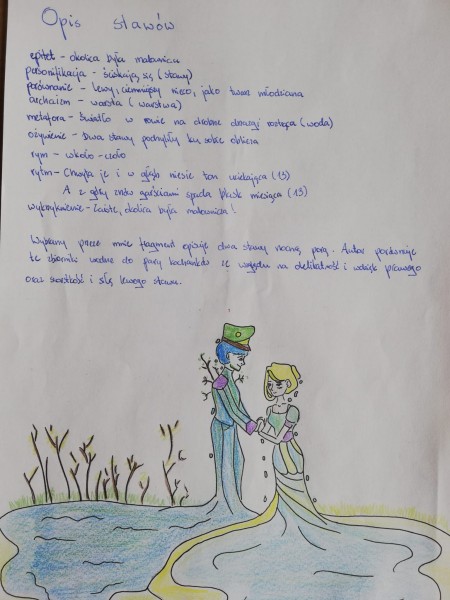 Opis stawów
epitet - okolica była malownicza
personifikacja - ściskają się (stawy)
porównanie - lewy, ciemniejszy nieco, jako twarz młodziana
archaizm - warsta (warstwa)
metafora - światło w rowie na drobne drzazgi roztrąca (woda)
ożywienie - Dwa stawy pochyliły ku sobie oblicza
rym - wkoło - czoło
rytm - Chwyta je i w głąb niesie toń uciekająca (13)
A z góry znów garściami spada blask miesiąca (13)
wykrzyknienie - Zaiste, okolica była malownicza!
Wybrany przez mnie fragment opisuje dwa stawy nocną porą. Autor porównuje
te zbiorniki wodne do pary kochanków ze względu na delikatność i wdzięk prawego
oraz szorstkość i siłę lewego stawu.